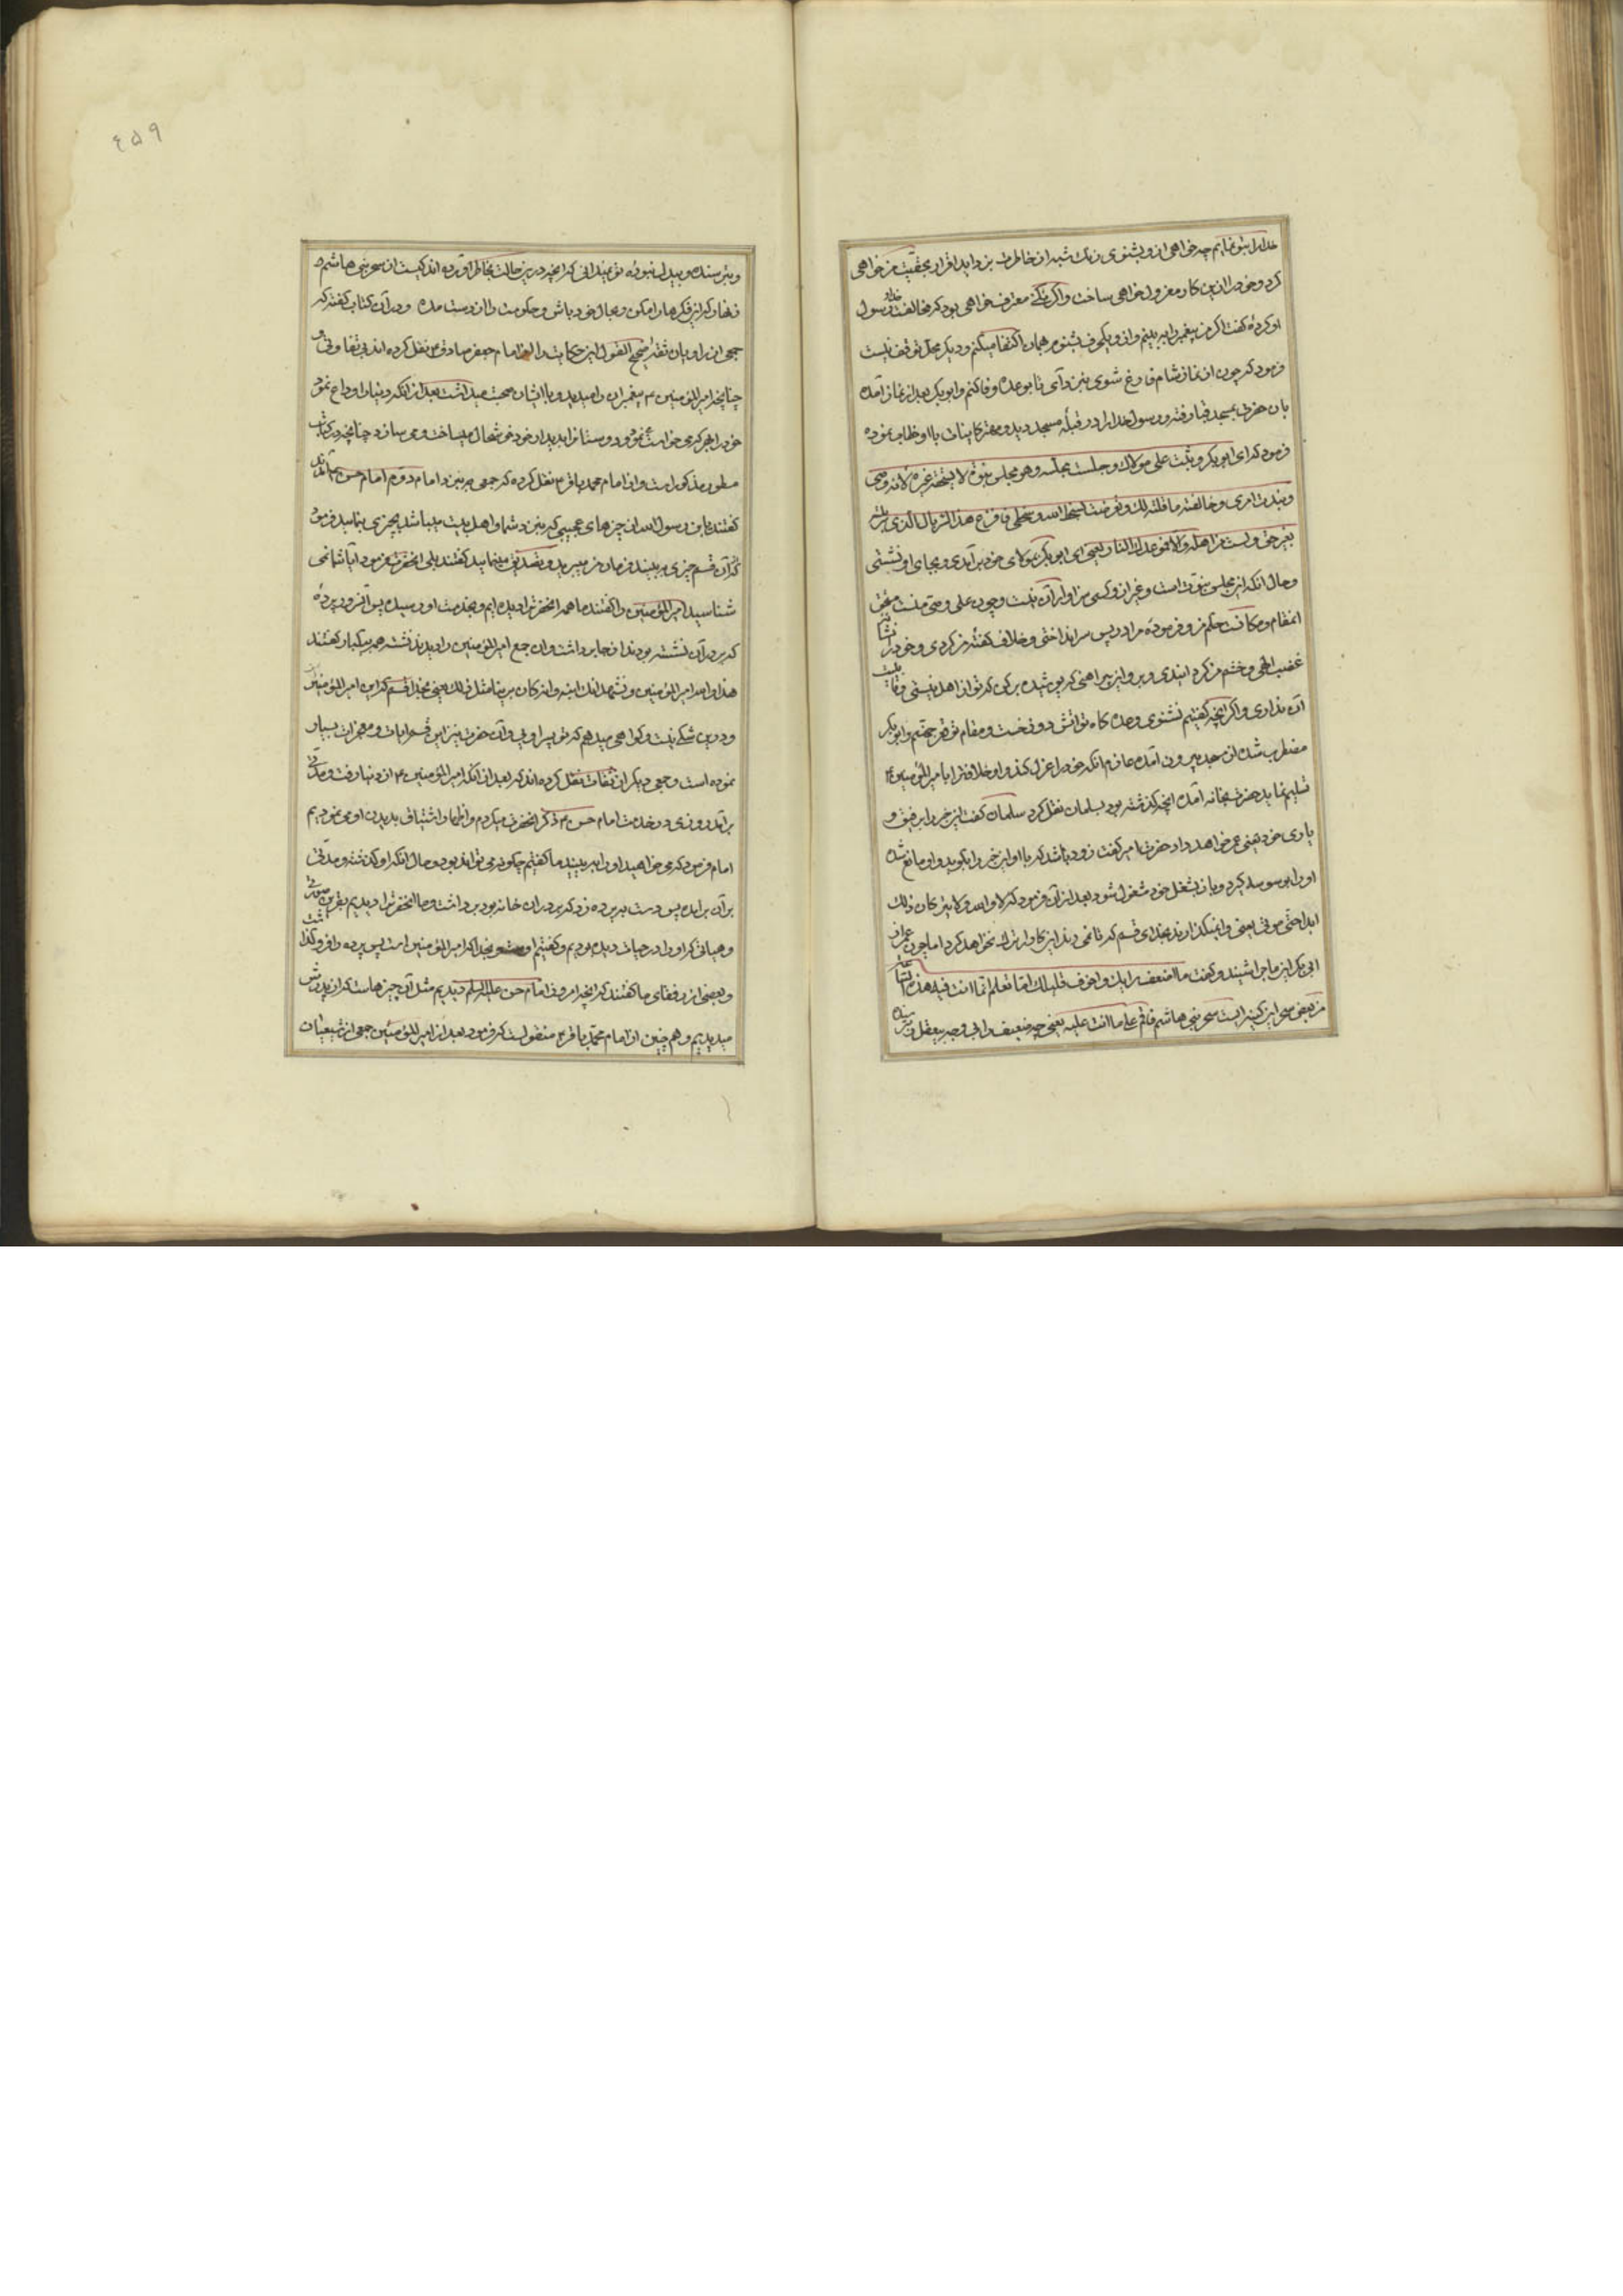 خدا را بتو نمایم چه خواهی از و بشنوی زنک شبه از خاطرت بزداید اقرار بحقیت من خواهی
کرد و خود را ازین کار معزول خواهی ساخت و اگر نکنی معترف خواهی بود که مخالفت خدا و رسول
او کرده گفت اگر من پیغمبر را ببینم و از و یکحرف بشنوم همان اکتفا میکنم و دیگر محل توقف نیست
فرمود که چون از نماز شام فارغ شوی بنزد من آی تا بوعده وفا کنم و ابو بکر بعد از نماز آمده
بان حضرت بمسجد قبا رفته و رسول خدا را در قبلهٔ مسجد دید و مهتر کاینات با او خطاب نموده
فرمود که ای ابو بکر وثبت علی مولاک وجلست مجلسه وهو مجلس نبوة لا یستحقه غیره لانه وصیی
ونبذت امری وخالفته ما قلته لک وتعرضت لسخط الله وسخطی فانزع هذا السربال الذی
بغیر حق ولست من اهله والا فموعدک النار یعنی ای ابو بکر بمولای خود برآمدی و بجای او نشستی
و حال آنکه این مجلس نبوت است و غیر از و کسی سزاوار آن نیست و چون علی وصی منست مستحق
انمقام و مکانت حکم من و فرموده مرا در پس سر انداختی و خلاف گفته من کردی و خود را نشانه
غضب الهی و خشم من گردانیدی و برو ازین پیراهنی که پوشیده برکن که تو از اهل نیستی و قابلیت
آن نداری و اگر آنچه گفتم نشنوی وعده گاه تو آتش دوزخست و مقام تو قعر جهنم و ابو بکر
مضطرب شده از مسجد بیرون آمده عازم آنکه خود را عزل کند و او خلافت را بامیر المؤمنین ع
تسلیم نماید حضرت بخانه آمده آنچه گذشته بود بسلمان نقل کرد سلمان گفت این خبر را برفیق و
یاری خود یعنی عمر خواهد داد حضرت امیر گفت زود باشد که با او این خبر را بگوید و او مانع شده
او را بوسوسه گیرد و باز بشغل خود مشغول شود بعد از آن فرمود که لا والله ولا یترکان ذلک
ابدا حتی موتی یعنی وانمیگذارند بخدای قسم که تا نمی‌رند این کار را ترک نخواهد کرد اما چون عمر از
ابی بکر این ماجرا شنید و گفت ما اضعف رایک واخوف قلبک اما تعلم انما انت فیه هذه الساعة
من بعض سحر ابن کبشه انیست سحر بنی هاشم فاقم علی ما انت علیه یعنی چه ضعیف رایی و چه بیعقل و ترسنده
و بترسنده و بیدل نبودهٔ تو نمیدانی که آنچه درین حالت بخاطر آورده اند کیست از سحر بنی هاشم
زنهار که ازین فکرها را مکن و بحال خود باش و حکومت را از دست مده و در آن کتاب گفته که
جمعی از راویان ثقه صحیح القول این حکایت را از امام جعفر صادق ع نقل کرده اند بی تفاوتی و
چنانچه امیر المؤمنین ع پیغمبران را میدید و با ایشان صحبت میداشت بعد از آنکه دنیا را وداع نمود
خود را بهر که می خواست نمود و دوستانرا بدیدار خود خوشحال میساخت و می سازد چنانچه در کتاب
مسطور مذکور است و از امام محمد باقر ع نقل کرده که جمعی بنزد امام دوم امام حسن ع آمدند
گفتند یابن رسول الله از چیزهای عجیبی که بنزد شما و اهل بیت میباشد چیزی بنمایید فرمود
که آن قسم چیزی ببینند فرمان من میبرید و تصدیق مینمایید گفتند بلی انحضرت فرمود آیا شما نمی
شناسید امیر المؤمنین را گفتند ما همه انحضرت را دیده ایم و بخدمت او رسیده پس آنسرور پردهٔ
که بر در آن نشسته بودند از جا برداشت و آن جمع امیر المؤمنین را دیدند نشسته همه بیکبار گفتند
هذا والله امیر المؤمنین ونشهد انک ابنه وانه کان یرینا مثل ذلک یعنی بخدا قسم که این امیر المؤمنین
و درین شکی نیست و گواهی میدهم که تو پسر اویی و آن حضرت نیز این قسم آیات و معجزات بسیار
نموده است و جمعی دیگر از ثقات نقل کرده اند که بعد از آنکه امیر المؤمنین ع از دنیا رفت و مدتی
برآمد روزی در خدمت امام حسن ع ذکر انحضرت میکردم و اظهار اشتیاق بدیدن او می نمودیم
امام فرمود که می خواهید او را ببینید ما گفتیم چگونه می تواند بود و حال آنکه او گذشته و مدتی
برآن برآمده پس دست بر پرده زد که بر در آن خانه بود برداشت و ما انحضرت را دیدیم بهترین صورتی
و هیاتی که او را در حیات دیده بودیم و گفتیم بخدا که امیر المؤمنین است پس پرده را فرو گذاشت
و بعضی از رفقای ما گفتند که آنچه امروز از امام حسن علیه السلم دیدیم مثل آن چیزهاست که از پدرش
میدیدیم و هم چنین از امام محمد باقر ع منقول است که فرمود بعد از امیر المؤمنین جمعی از شیعیان
٤۵۹